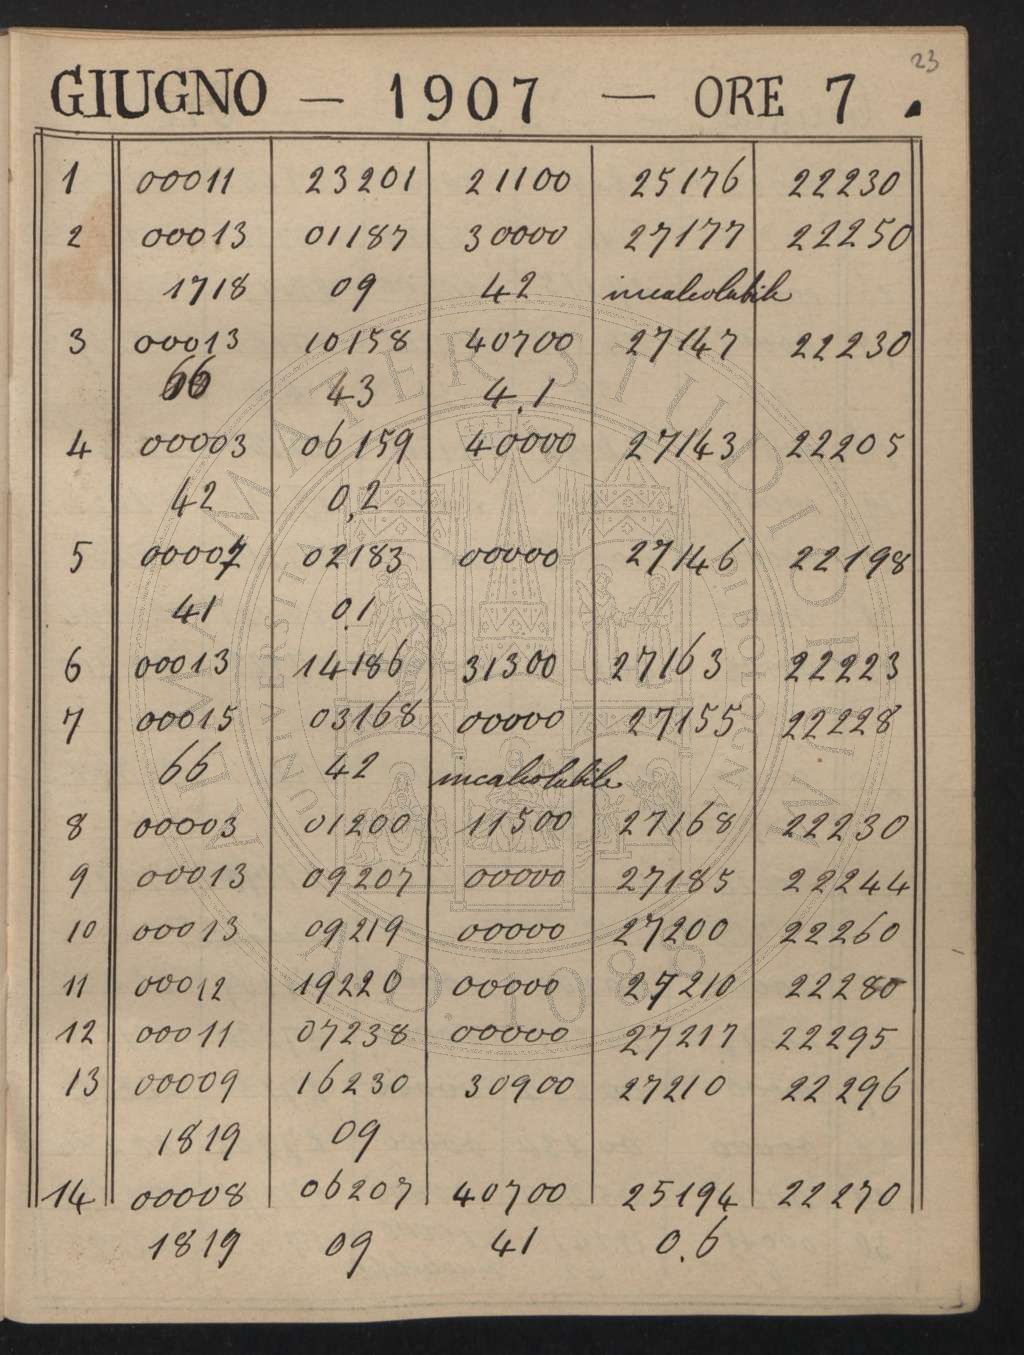 23
GIUGNO — 1907 — ORE 7.
1 00011 23201 21100 25176 22230
2 00013 01187 30000 27177 22250
1718 09 42 incalcolabile
3 00013 10158 40700 27147 22230
66 43 4.1
4 00003 06159 40000 27143 22205
42 0.2
5 00007 02183 00000 27146 22198
41 0.1
6 00013 14186 31300 27163 22223
7 00015 03168 00000 27155 22228
66 42 incalcolabile
8 00003 01200 11500 27168 22230
9 00013 09207 00000 27185 22244
10 00013 09219 00000 27200 22260
11 00012 19220 00000 27210 22280
12 00011 07238 00000 27217 22295
13 00009 16230 30900 27210 22296
1819 09
14 00008 06207 40700 25194 22270
1819 09 41 0.6
ALMA MATER STUDIORUM
A.D. 1088